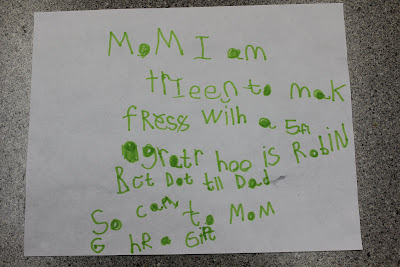 MoM I am
trIeen to mak
fRess wilh a 5th
gratr hoo is RobiN
But Dot til Dad
So can to MoM
G hR a Gift